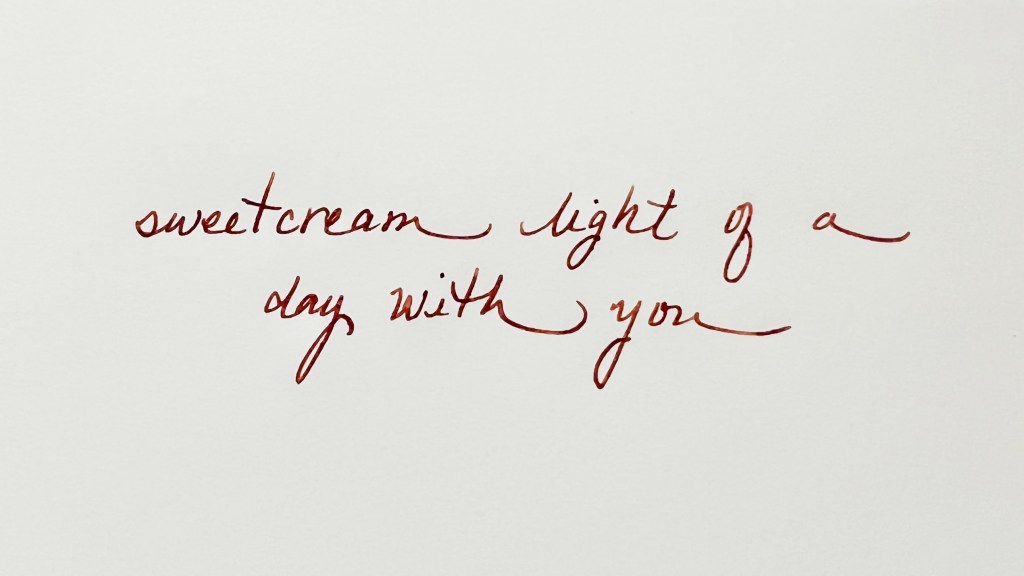 sweetcream light of a
day with you